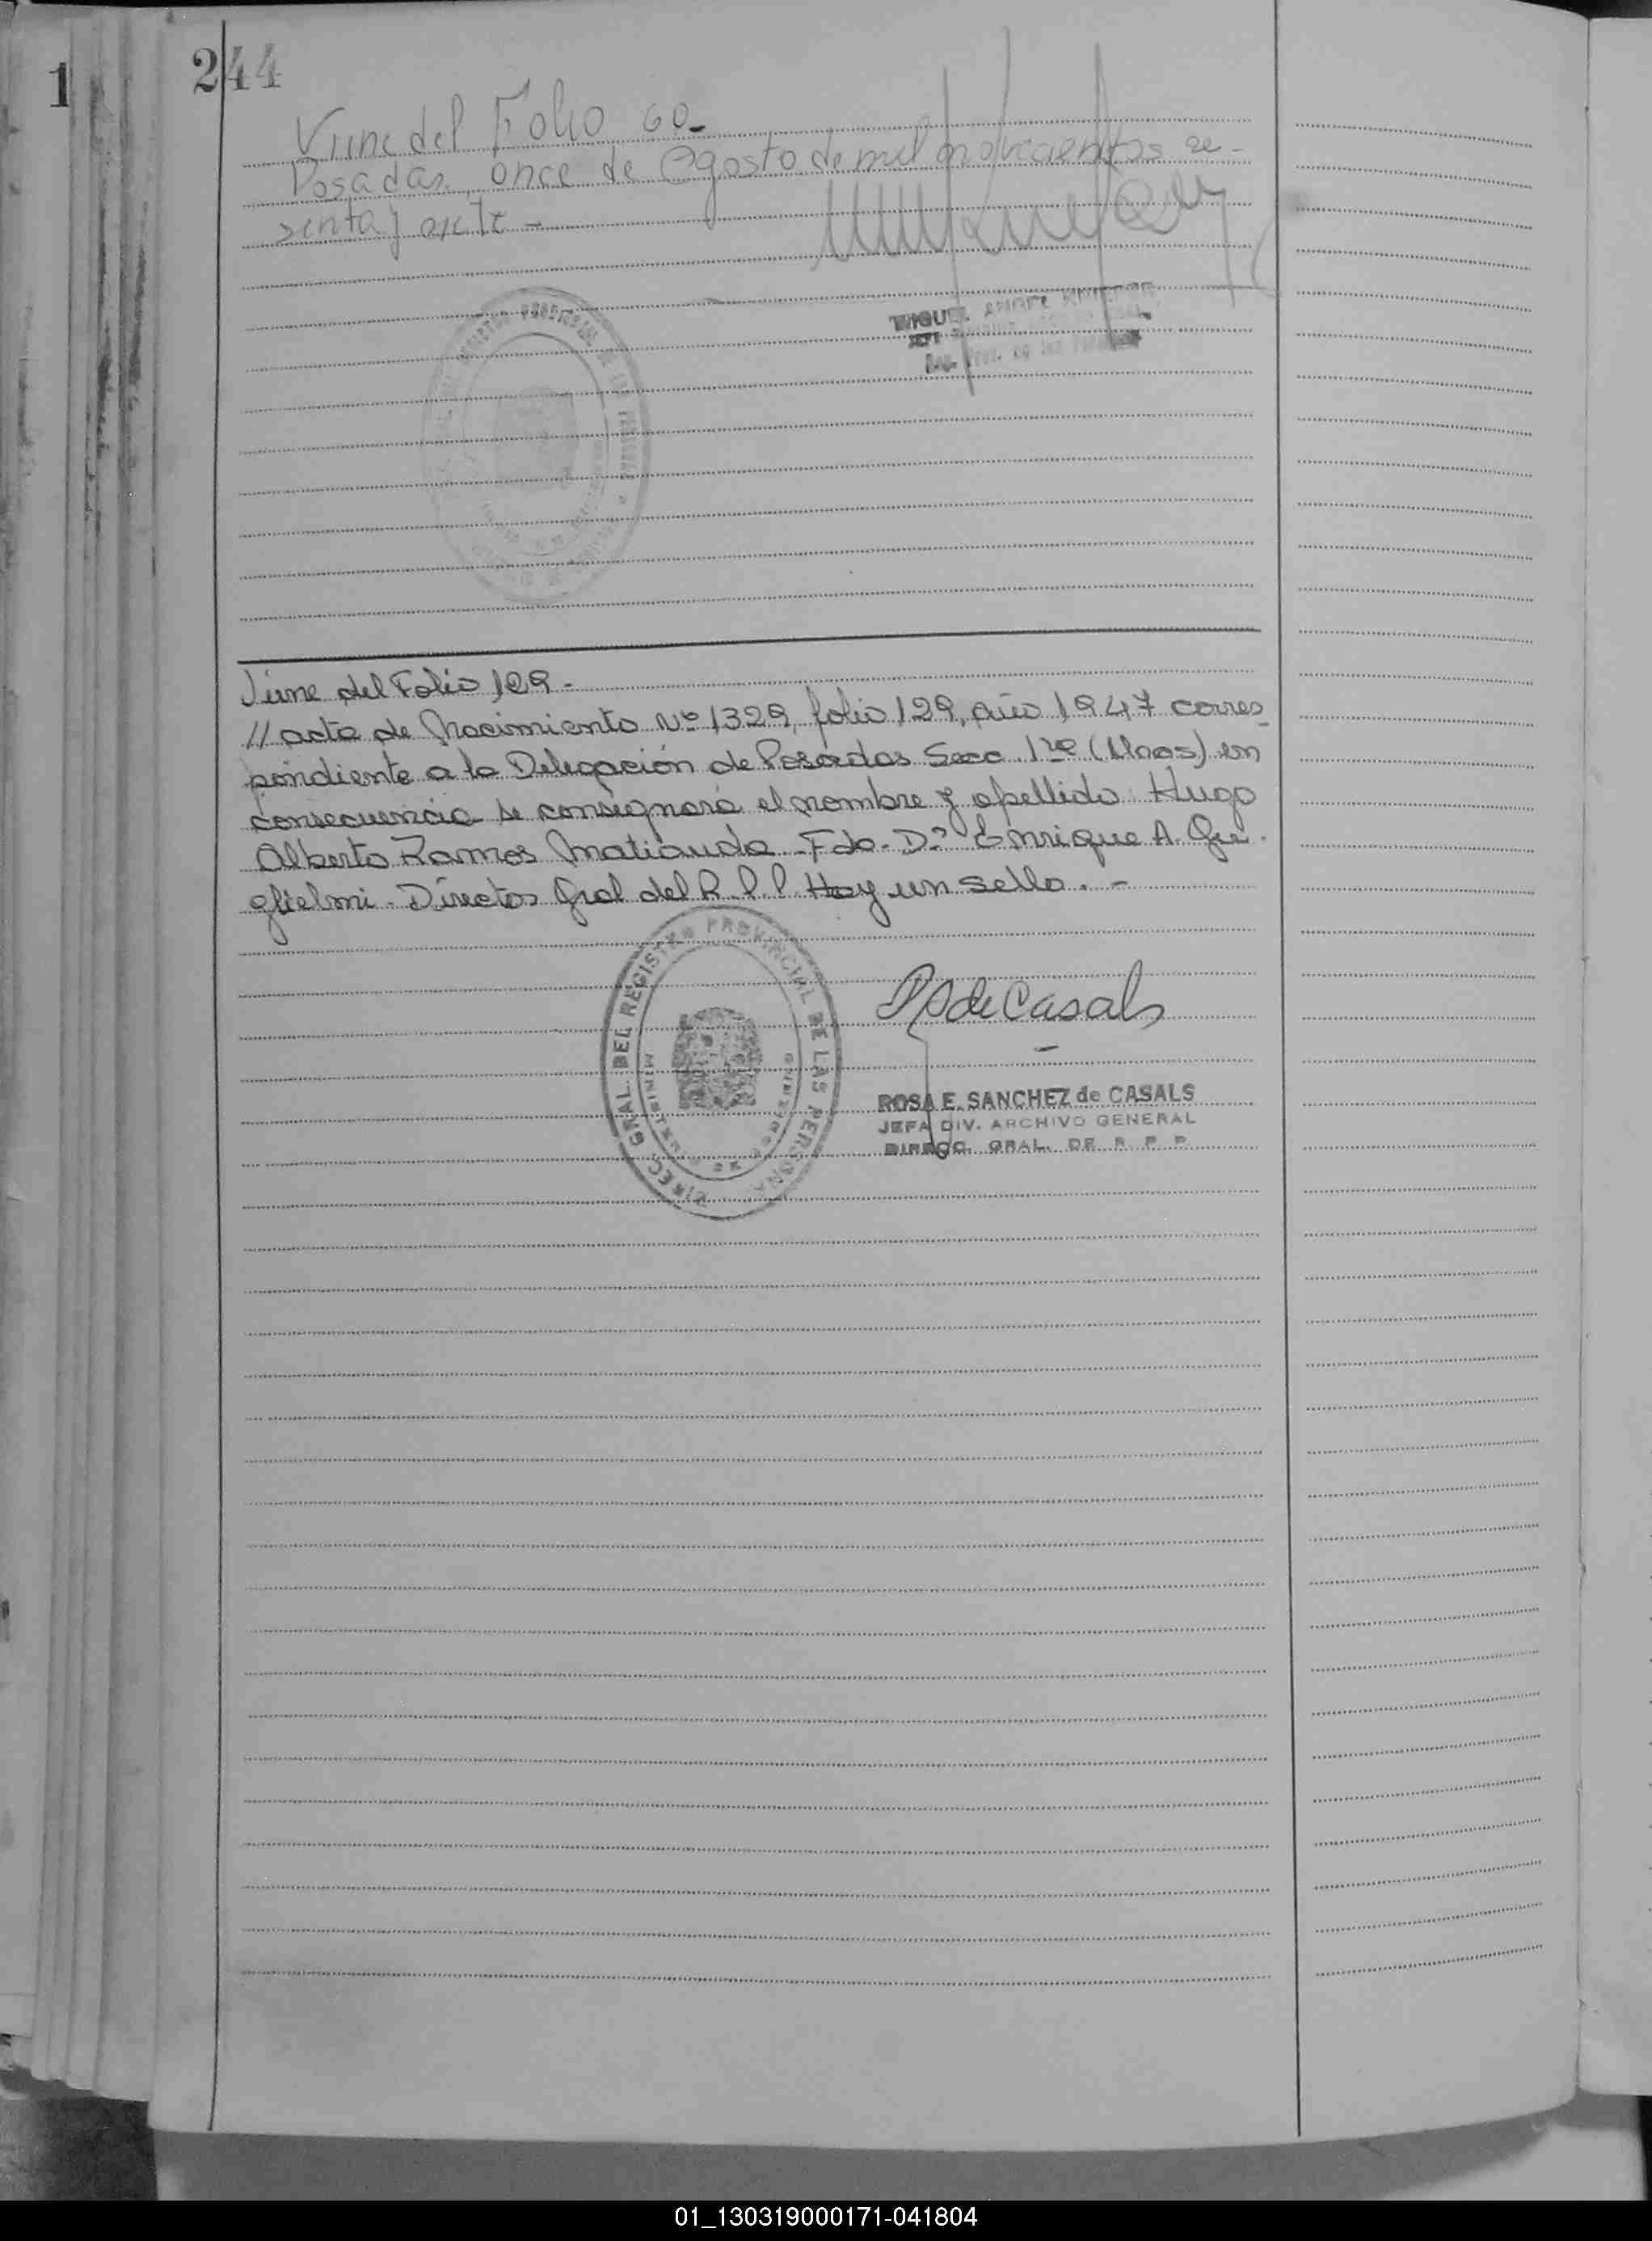 1
244
Viene del Folio 60-
Posadas, once de Agosto de mil novecientos se-
senta y siete -
MIGUEL ANGEL
JEFE
Viene del Folio 129-
// acta de Nacimiento Nº 1329, folio 129, año 1947 corres
pondiente a la Delegación de Posadas Secc. 1ra (Mnes) en
consecuencia se consignará el nombre y apellido: Hugo
Alberto Ramos Matiauda - Fdo. Dº Enrique A. Gu
glielmi - Director Gral del R.P.P. Hay un sello. -
DIRECC. GRAL. DEL REGISTRO PROVINCIAL DE LAS PERSONAS
MINISTERIO DE GOBIERNO
R S de Casals
ROSA E. SANCHEZ de CASALS
JEFA DIV. ARCHIVO GENERAL
DIRECC. GRAL. DE R. P. P.
01_130319000171-041804